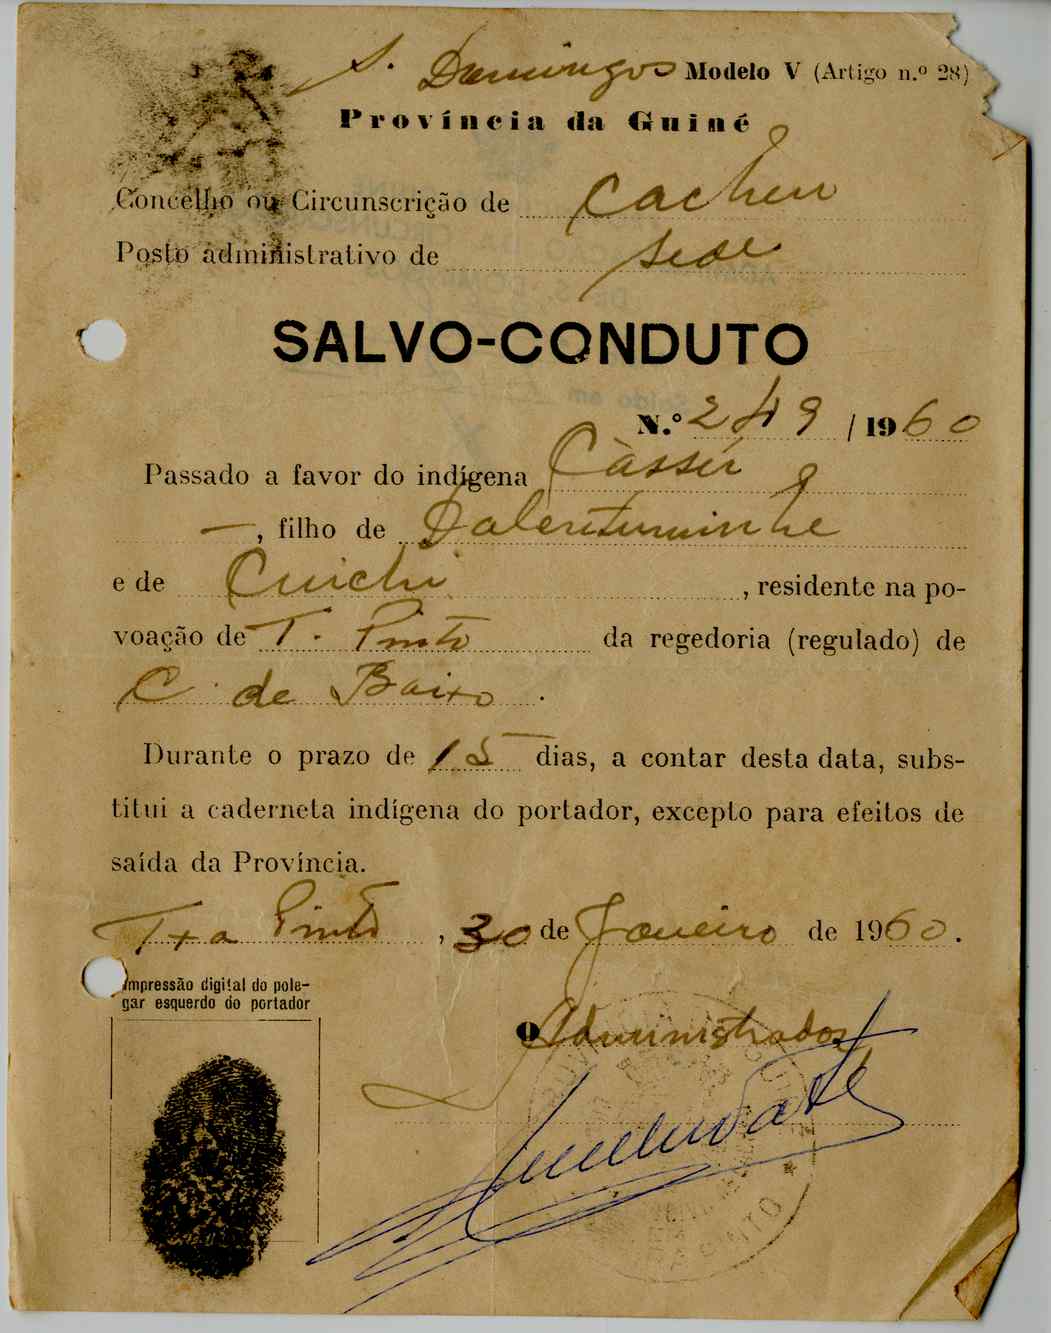 S. Domingos Modelo V (Artigo n.º 28)
Província da Guiné
Concelho ou Circunscrição de Cacheu
Posto administrativo de Sede
SALVO-CONDUTO
N.º 249 / 1960
Passado a favor do indígena Càssú
—, filho de
e de Cuichi, residente na po-
voação de T. Pinto da regedoria (regulado) de
C. de Baixo.
Durante o prazo de 15 dias, a contar desta data, subs-
titui a caderneta indígena do portador, excepto para efeitos de
saída da Província.
Txa Pinto, 30 de Janeiro de 1960.
Impressão digital do pole-
gar esquerdo do portador
O Administrador